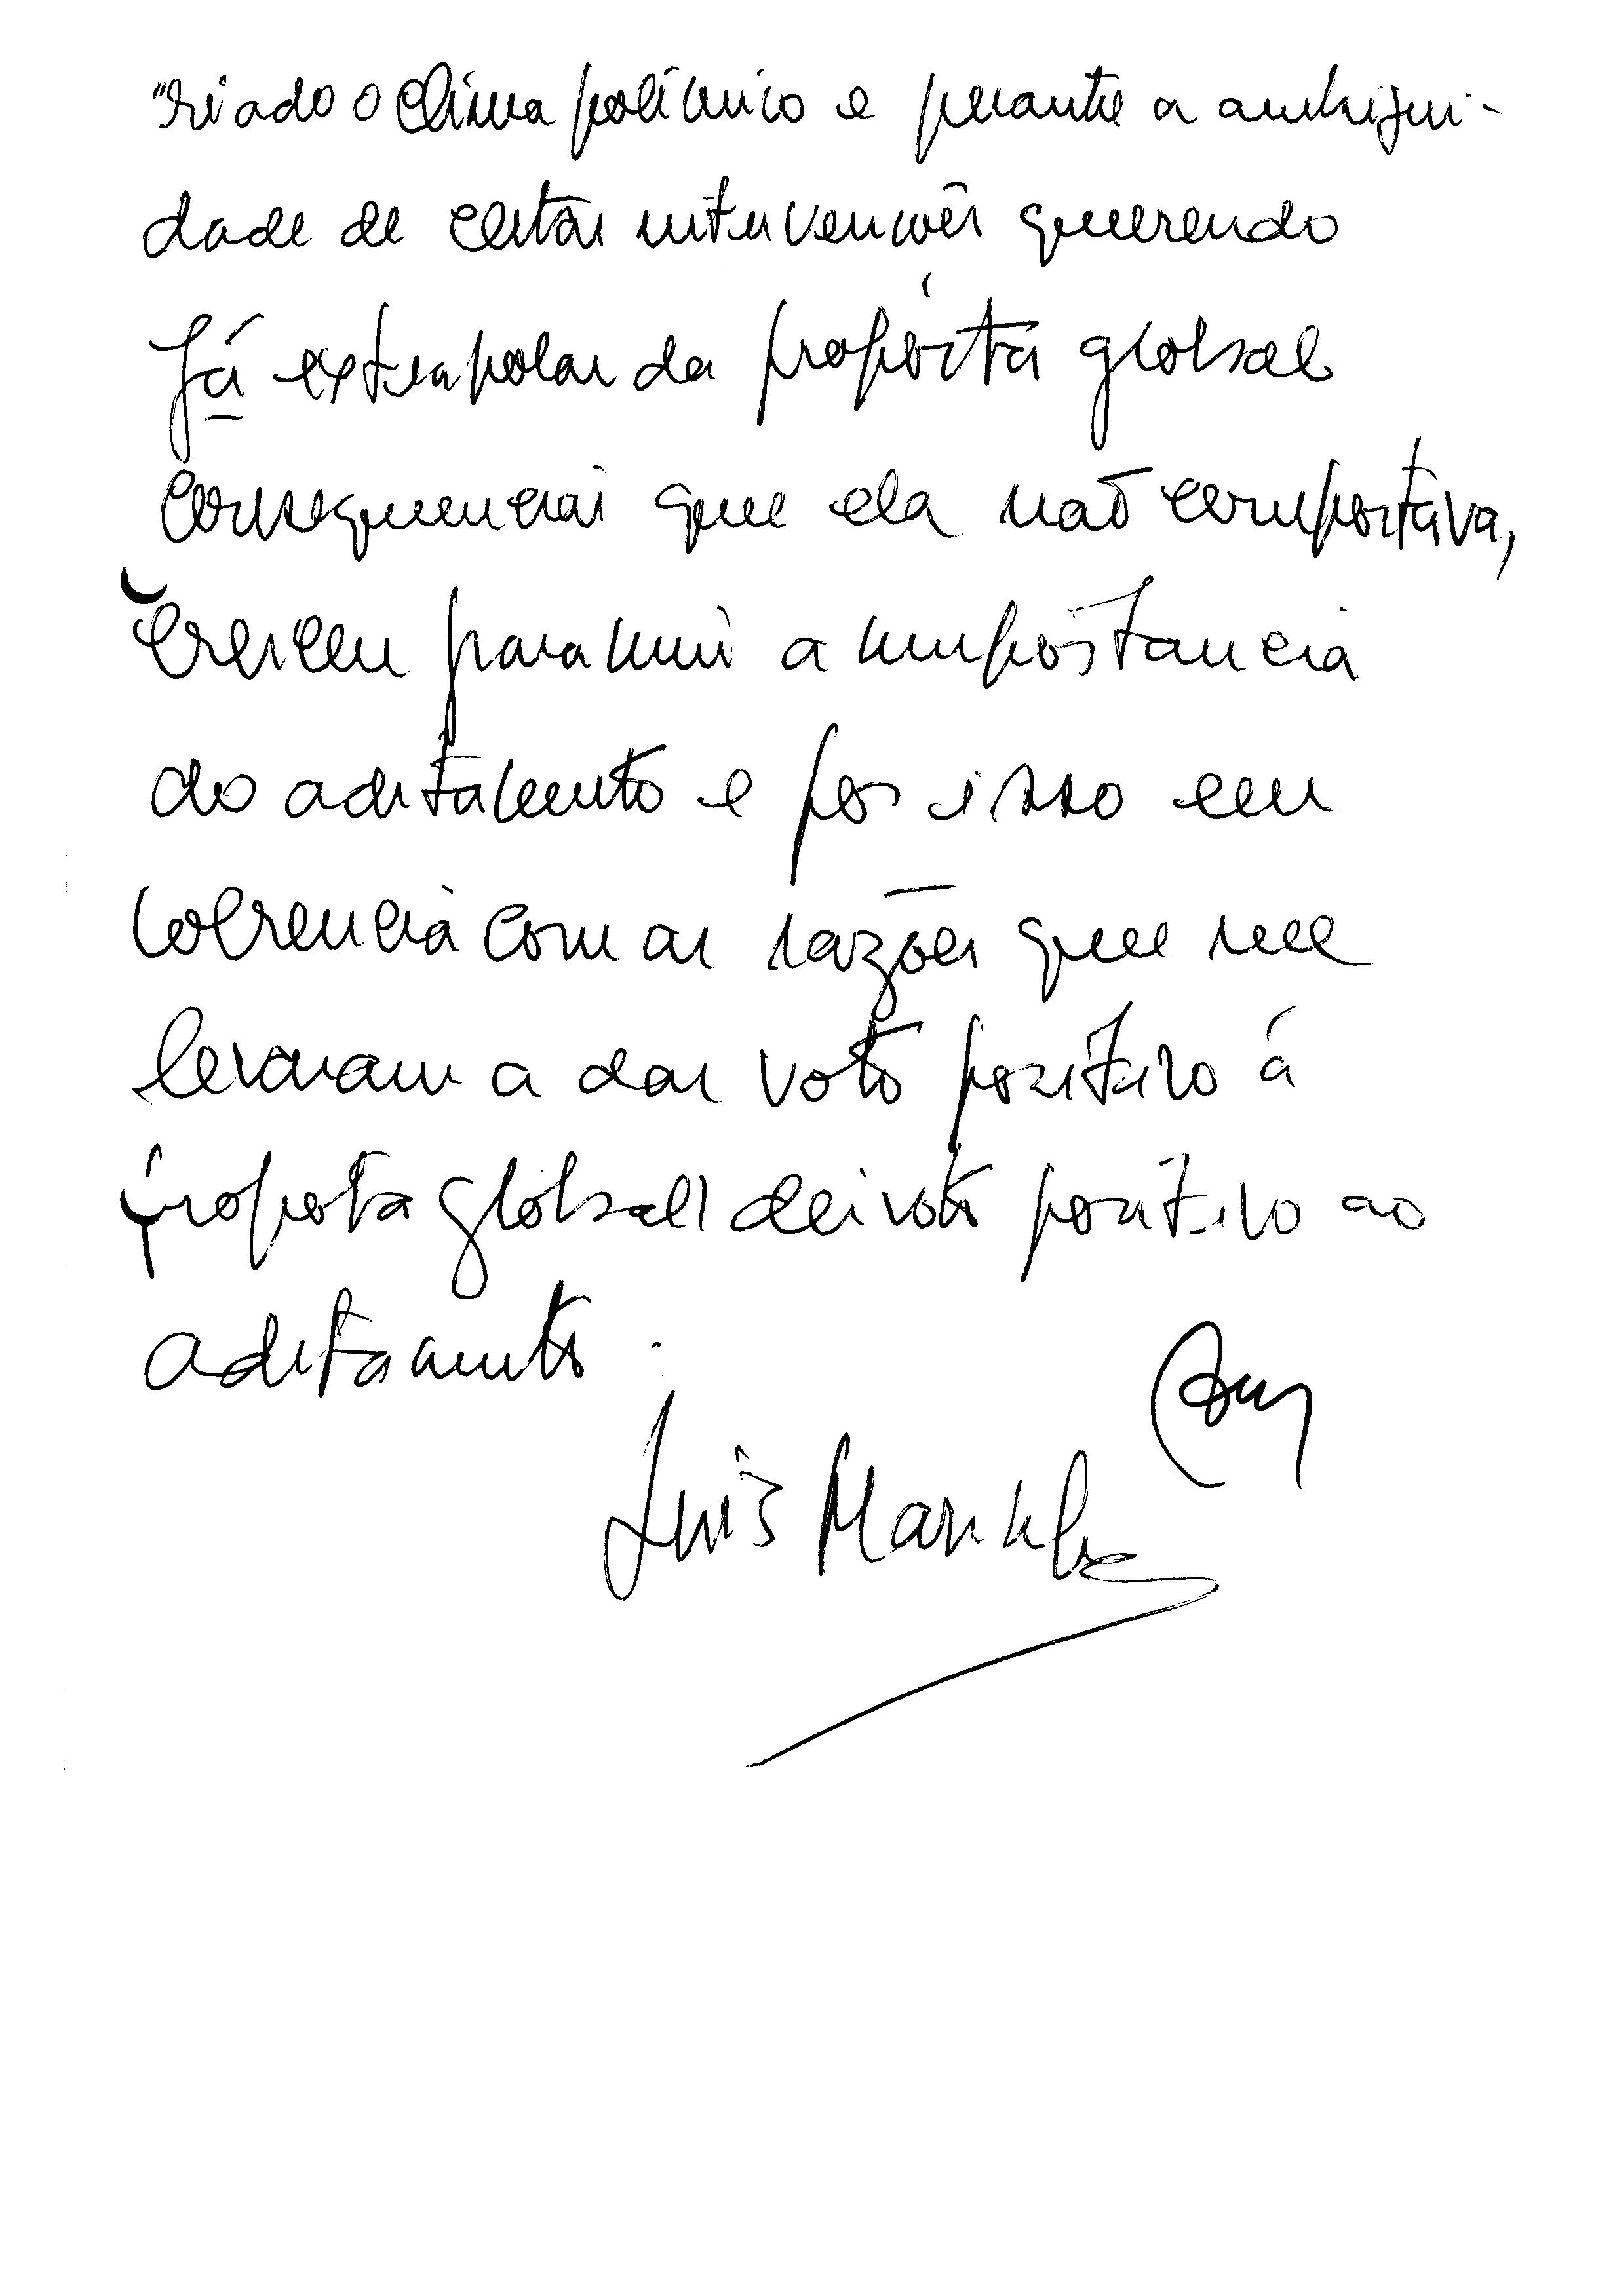 "riado o clima polémico e perante a ambigui-
dade de certas intervenções querendo
já extrapolar da propósta global
consequencias que ela não comportava,
cresceu para mim a importancia
do aditamento e por isso em
coerencia com as razões que me
levaram a dar voto positivo á
proposta global dei voto positivo ao
aditamento.
Luis